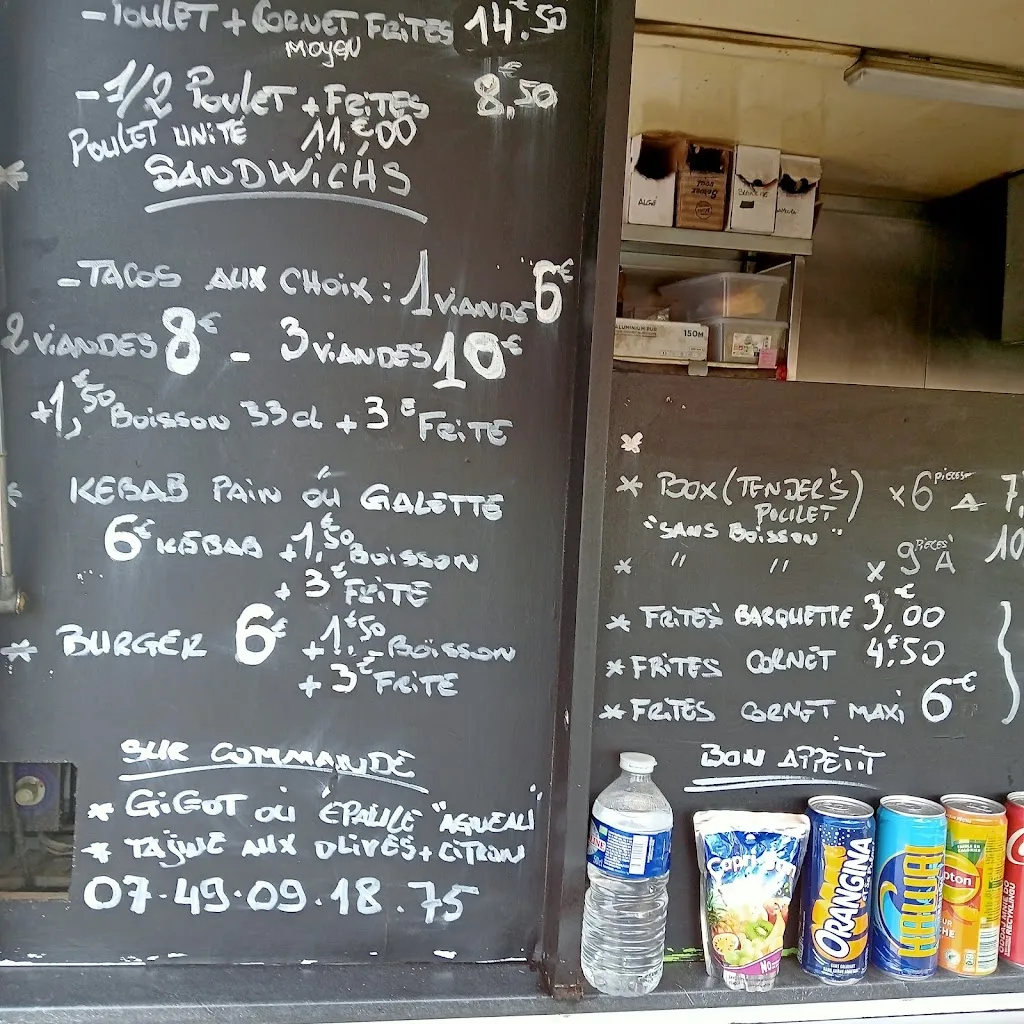 - POULET + CORNET FRITES 14.€50
MOYEN
- 1/2 POULET + FRITES 8,€50
POULET UNITÉ 11,€00
SANDWICHS
- TACOS AUX CHOIX : 1 VIANDE 6€
2 VIANDES 8€ - 3 VIANDES 10€
+ 1,€50 BOISSON 33cl + 3€ FRITE
KEBAB PAIN OÙ GALETTE
6€ KEBAB + 1,€50 BOISSON
+ 3€ FRITE
* BURGER 6€ + 1,€50 BOISSON
+ 3€ FRITE
SUR COMMANDE
* GIGOT OÙ ÉPAULE "AGNEAU"
* TAJINE AUX OLIVES + CITRON
07.49.09.18.75
ALGÉ
BLANCHE
ALUMINIUM PUR 150M
* BOX (TENDER'S) x 6 PIÈCES A 7,
POULET
"SANS BOISSON"
* " " x 9 PIÈCES A 10
* FRITES BARQUETTE 3,€00
* FRITES CORNET 4,€50
* FRITES CORNET MAXI 6€
BON APPÉTIT
Capri-Sun
NO
ORANGINA
HAWAI
Lipton